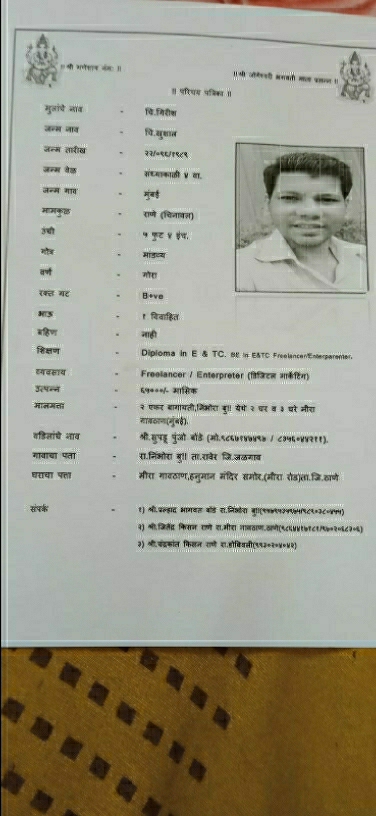 ॥ श्री गणेशाय नमः ॥
॥ श्री जोगेश्वरी भगवती माता प्रसन्न ॥
॥ परिचय पत्रिका ॥
मुलांचे नाव - चि.गिरीश
जन्म नाव - चि.खुशाल
जन्म तारीख - २२/०९/१९८९
जन्म वेळ - संध्याकाळी ४ वा.
जन्म गाव - मुंबई
मामकुळ - राणे (चिनावल)
उंची - ५ फुट ४ इंच.
गोत्र - मांडव्य
वर्ण - गोरा
रक्त गट - B+ve
भाऊ - १ विवाहित
बहिण - नाही
शिक्षण - Diploma in E & TC. BE in E&TC Freelancer/Enterparenter.
व्यवसाय - Freelancer / Enterpreter (डिजिटल मार्केटिंग)
उत्पन्न - मासिक
मालमत्ता - २ एकर बागायती,निंभोरा बु!! येथे २ घर व ३ घरे मीरा
गावठाण(मुंबई).
वडिलांचे नाव - श्री.सुपडू पुंजो बोंडे
गावाचा पत्ता - रा.निंभोरा बु!! ता.रावेर जि.जळगाव
घराचा पत्ता - मीरा गावठाण,हनुमान मंदिर समोर,(मीरा रोड)ता.जि.ठाणे
संपर्क - १) श्री.प्रल्हाद भागवत बोंडे रा.निंभोरा
२) श्री.जितेंद्र किसन राणे रा.मीरा गावठाण,ठाणे
३) श्री.चंद्रकांत किसन राणे रा.डोंबिवली